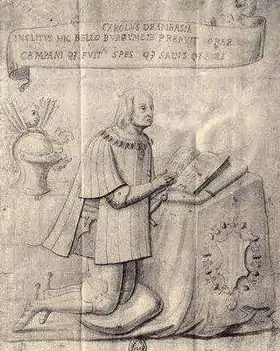 CAROLUS DEAMBASIA
INCLITUS HIC BELLO BURGUNDIE PRERUIT
CAMPANI Q3 FUIT SPES Q3 SALUS Q3